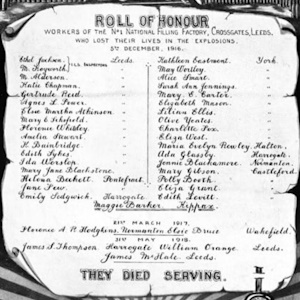 ROLL OF HONOUR
WORKERS OF THE No1 NATIONAL FILLING FACTORY, CROSSGATES, LEEDS,
WHO LOST THEIR LIVES IN THE EXPLOSIONS.
5TH DECEMBER, 1916.
Ethel Jackson. Leeds. Kathleen Eastment. York.
K. Bainbridge Eliza West.
M. Hepworth. I.C.D. INSPECTORS May Wortley.
M. Alderson. Alice Smart.
Katie Chapman. Sarah Ann Jennings.
Gertrude Reed. Mary E. Carter.
Agnes L. Power. Elizabeth Mason.
Olive Martha Atkinson. Lilian Ellis.
Mary E. Schofield. Olive Yeates.
Florence Whitley. Charlotte Fox.
Amelia Stewart.
Edith Sykes. Maria Evelyn Rowley, Halton.
Ida Worslop. Ada Glassby. Harrogate.
Mary Jane Blackstone. Jennie Blackamore. Normanton.
Helena Beckett. Pontefract. Mary Gibson. Castleford.
Jane Few. Polly Booth.
Emily Sedgwick. Harrogate Eliza Grant.
Edith Levitt.
Maggie Barker. Kippax.
21ST MARCH 1917.
Florence A. R. Hodgkins, Normanton Elsie Bruce Wakefield.
31ST MAY 1918.
James S. Thompson. Harrogate William Orange. Leeds.
James McHale. Leeds.
THEY DIED SERVING.